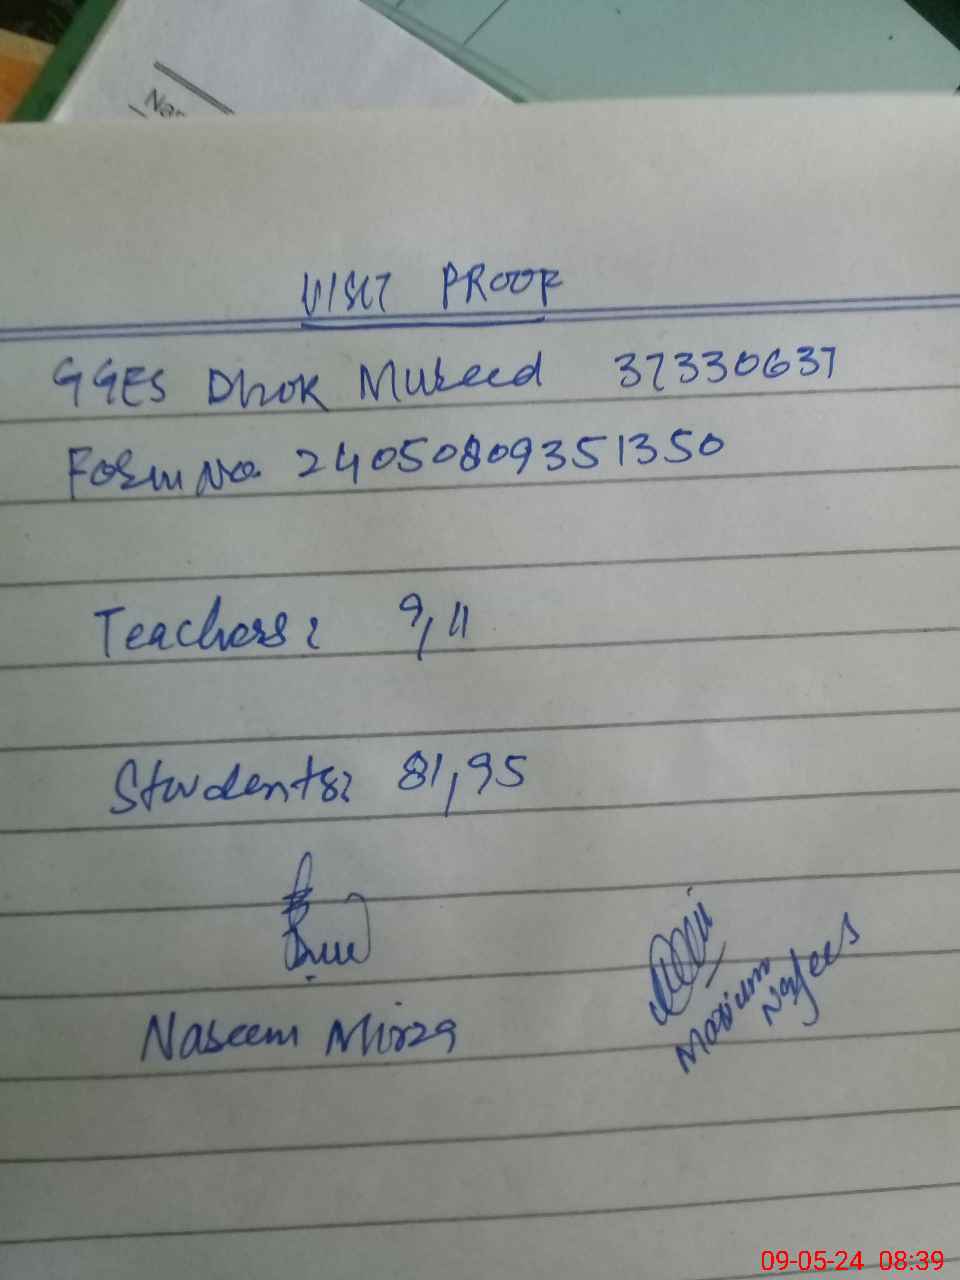 Nar
VISIT PROOF
GGES Dhok Mureed 37330637
Form No. 24050809351350
Teachers: 9, 11
Students: 81, 95
Naseem Mirza
Marium
Nafees
09-05-24 08:39